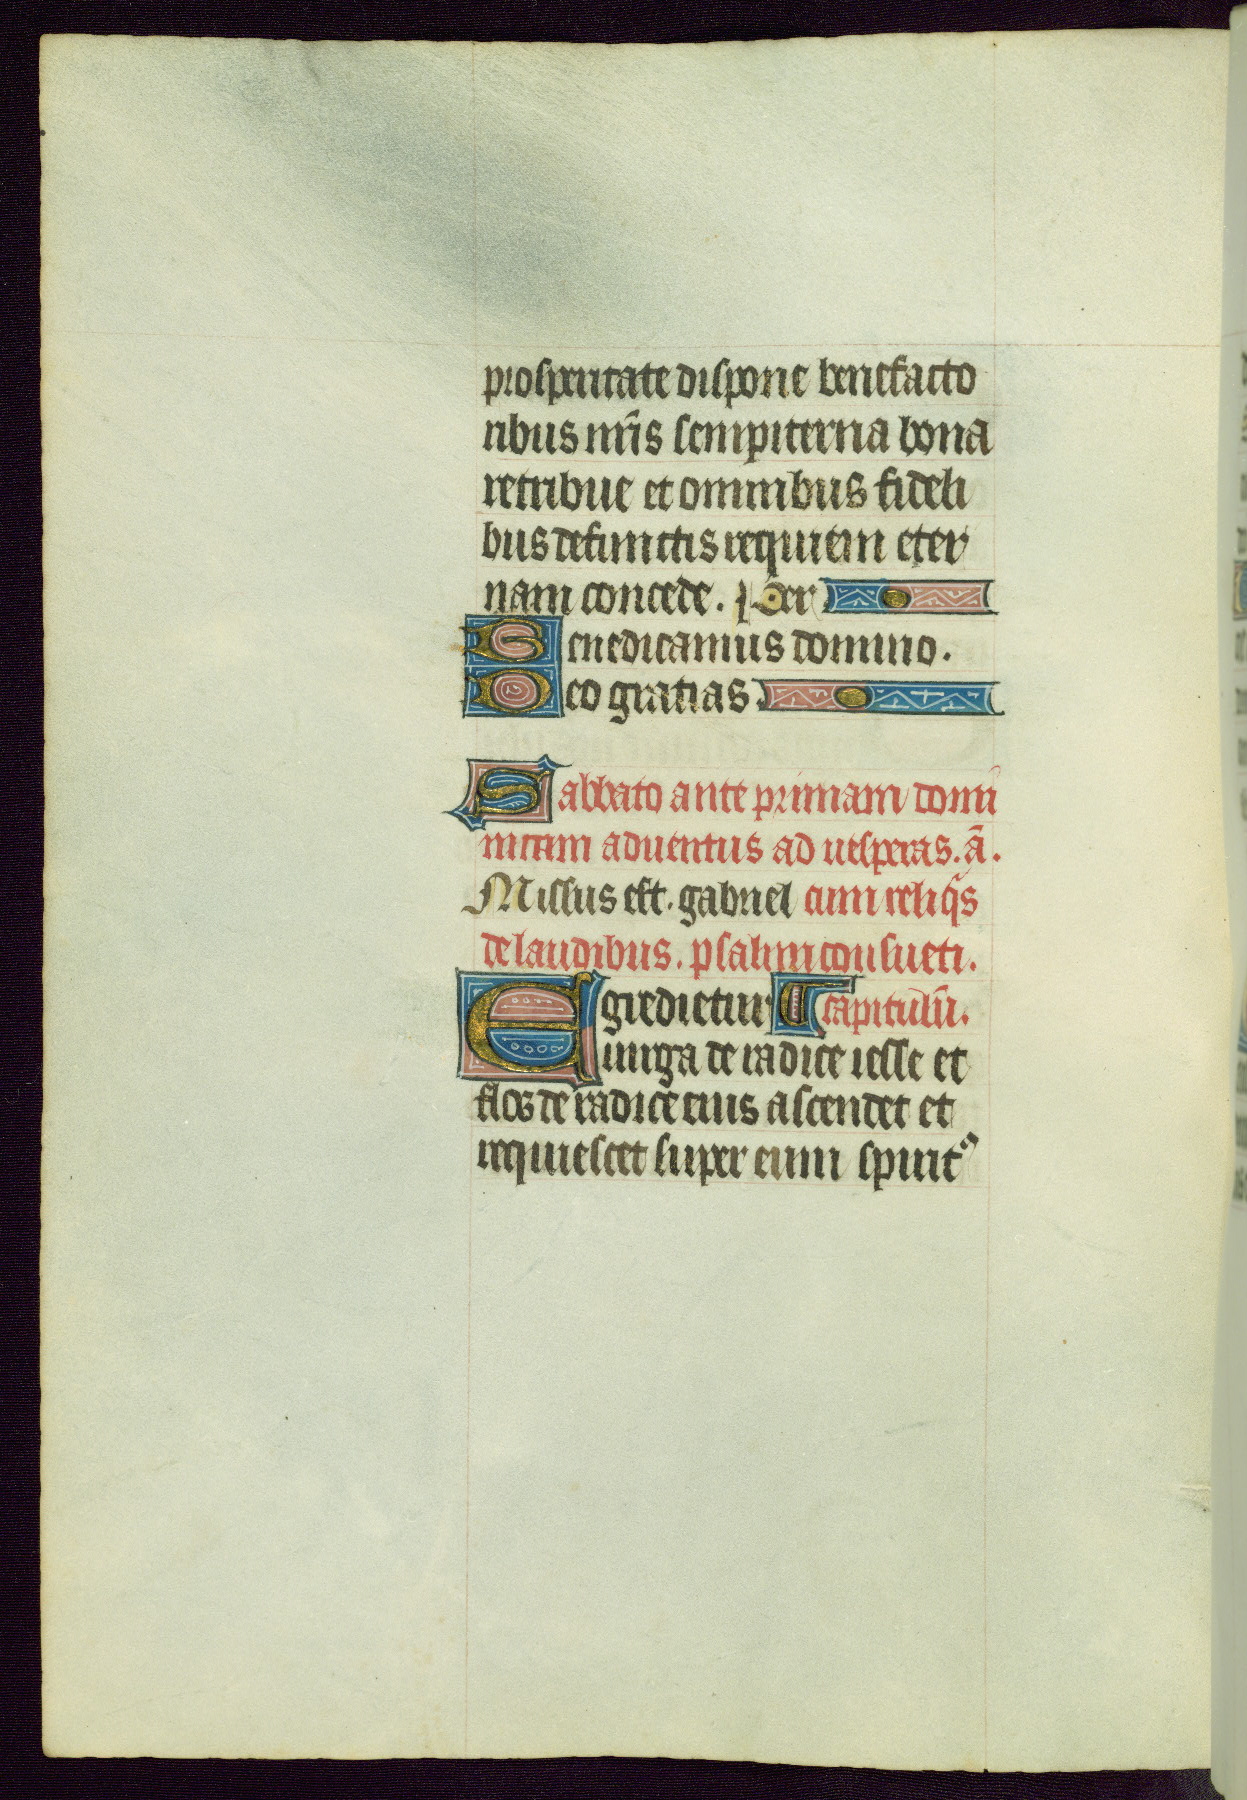 prosperitate dispone benefacto
ribus nr̃is sempiterna bona
retribue et omnibus fideli
bus defunctis requiem eter
nam concede. Per
Benedicamus domino.
Deo gratias.
Sabbato ante primam domi
nicam aduentus ad uesperas. ã.
Missus est. gabriel cum reliq̃s
de laudibus. psalmi consueti.
Egredietur Capitulũ.
uirga de radice iesse et
flos de radice eius ascendet et
requiescet super eum spiritꝰ